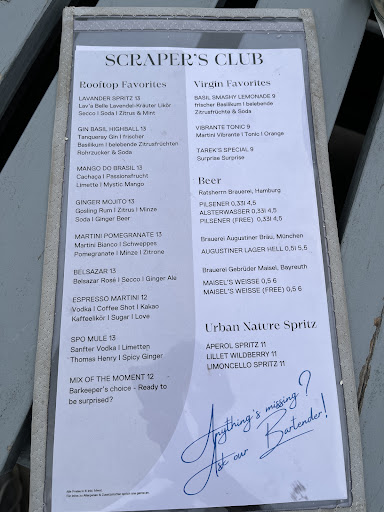 SCRAPER'S CLUB
Rooftop Favorites
LAVANDER SPRITZ 13
Lav'a Belle Lavendel-Kräuter Likör
Secco I Soda I Zitrus & Mint
GIN BASIL HIGHBALL 13
Tanqueray Gin I frischer
Basilikum I belebende Zitrusfrüchten
Rohrzucker & Soda
MANGO DO BRASIL 13
Cachaça I Passionsfrucht
Limette I Mystic Mango
GINGER MOJITO 13
Gosling Rum I Zitrus I Minze
Soda I Ginger Beer
MARTINI POMEGRANATE 13
Martini Bianco I Schweppes
Pomegranate I Minze I Zitrone
BELSAZAR 13
Belsazar Rosé I Secco I Ginger Ale
ESPRESSO MARTINI 12
Vodka I Coffee Shot I Kakao
Kaffeelikör I Sugar I Love
SPO MULE 13
Sanfter Vodka I Limetten
Thomas Henry I Spicy Ginger
MIX OF THE MOMENT 12
Barkeeper's choice - Ready
to be surprised?
Virgin Favorites
BASIL SMASHY LEMONADE 9
frischer Basilikum I belebende
Zitrusfrüchte & Soda
VIBRANTE TONIC 9
Martini Vibrante I Tonic I Orange
TAREK'S SPECIAL 9
Surprise Surprise
Beer
Ratsherrn Brauerei, Hamburg
PILSENER 0,33l 4,5
ALSTERWASSER 0,33l 4,5
PILSENER (FREE) 0,33l 4,5
Brauerei Augustiner Bräu, München
AUGUSTINER LAGER HELL 0,5l 5,5
Brauerei Gebrüder Maisel, Bayreuth
MAISEL'S WEISSE 0,5 6
MAISEL'S WEISSE (FREE) 0,5 6
Urban Nature Spritz
APEROL SPRITZ 11
LILLET WILDBERRY 11
LIMONCELLO SPRITZ 11
Anything's missing?
Ask our Bartender!